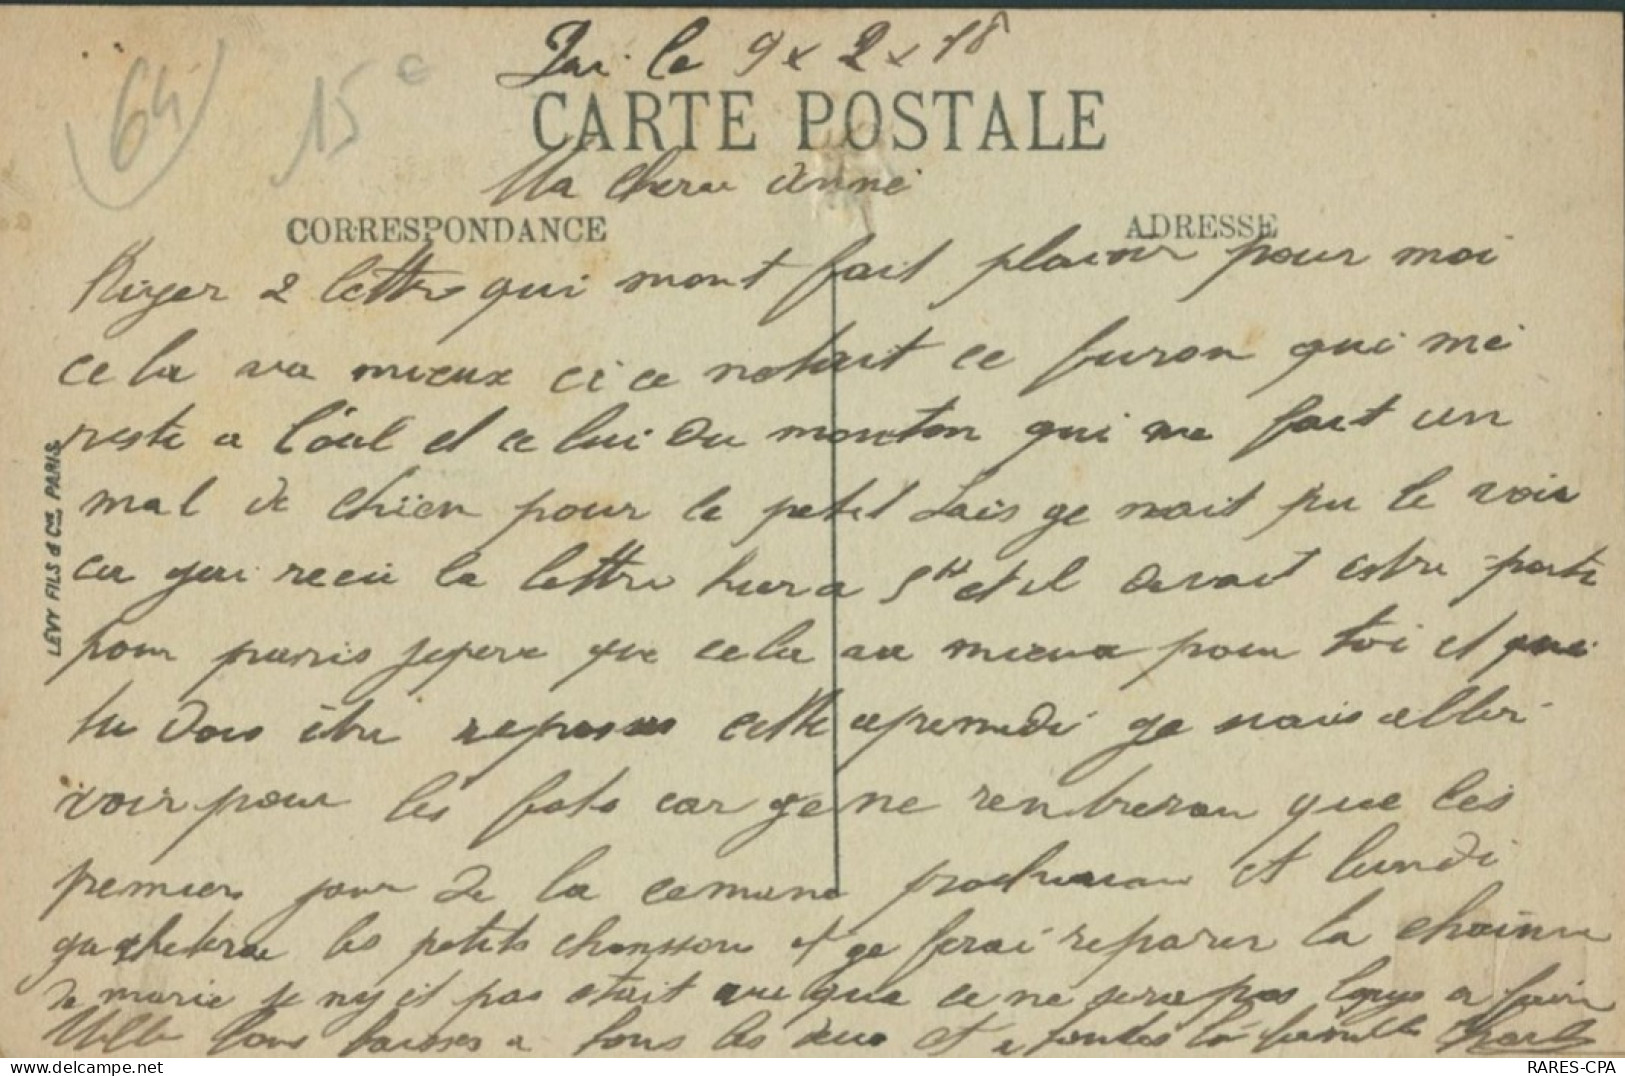 64
15 €
le 9 x 2 x 18
CARTE POSTALE
Ma cherre anne
CORRESPONDANCE
ADRESSE
2 lettre qui mont fait plaisir pour moi
cela va mieux ci ce netait ce furon qui me
reste a l'oeul et celui du menton qui me fait un
mal de chien pour le petit Lais ge nait pu le voir
car gai recu la lettre hier a 5 H et il devait estre parti
pour paris jespere que cela va mieux pour toi et que
tu dois être reposes cette apremidi ge vais aller
voir pour les foto car ge ne rentrerau que les
premiers jour de la cemene prochaine et lundi
gachetrae les petits chansson et ge ferai reparer la chainne
de marie je ny et pas etait que ce ne sera pas a faire
Mille bons baises a tous les deux et a toutes la famille
LÉVY FILS & Cie PARIS
RARES-CPA